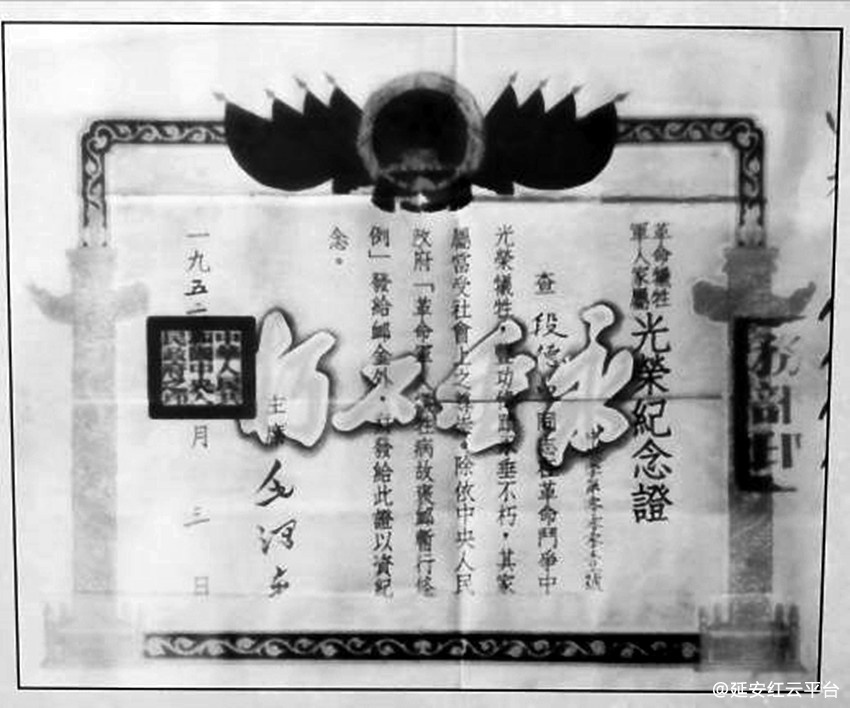 革命犧牲
軍人家屬
光榮紀念證
號
查段德同志在革命鬥爭中
光榮犧牲，功垂不朽，其家
屬當受社會上之尊崇。除依中央人民
政府「革命軍人犧牲病故褒卹暫行條
例」發給卹金外，並發給此證以資紀
念。
主席 毛澤东
一九五二 月 三 日
中華人民共和國中央人民政府之印
務部印
永垂不朽
@延安红云平台